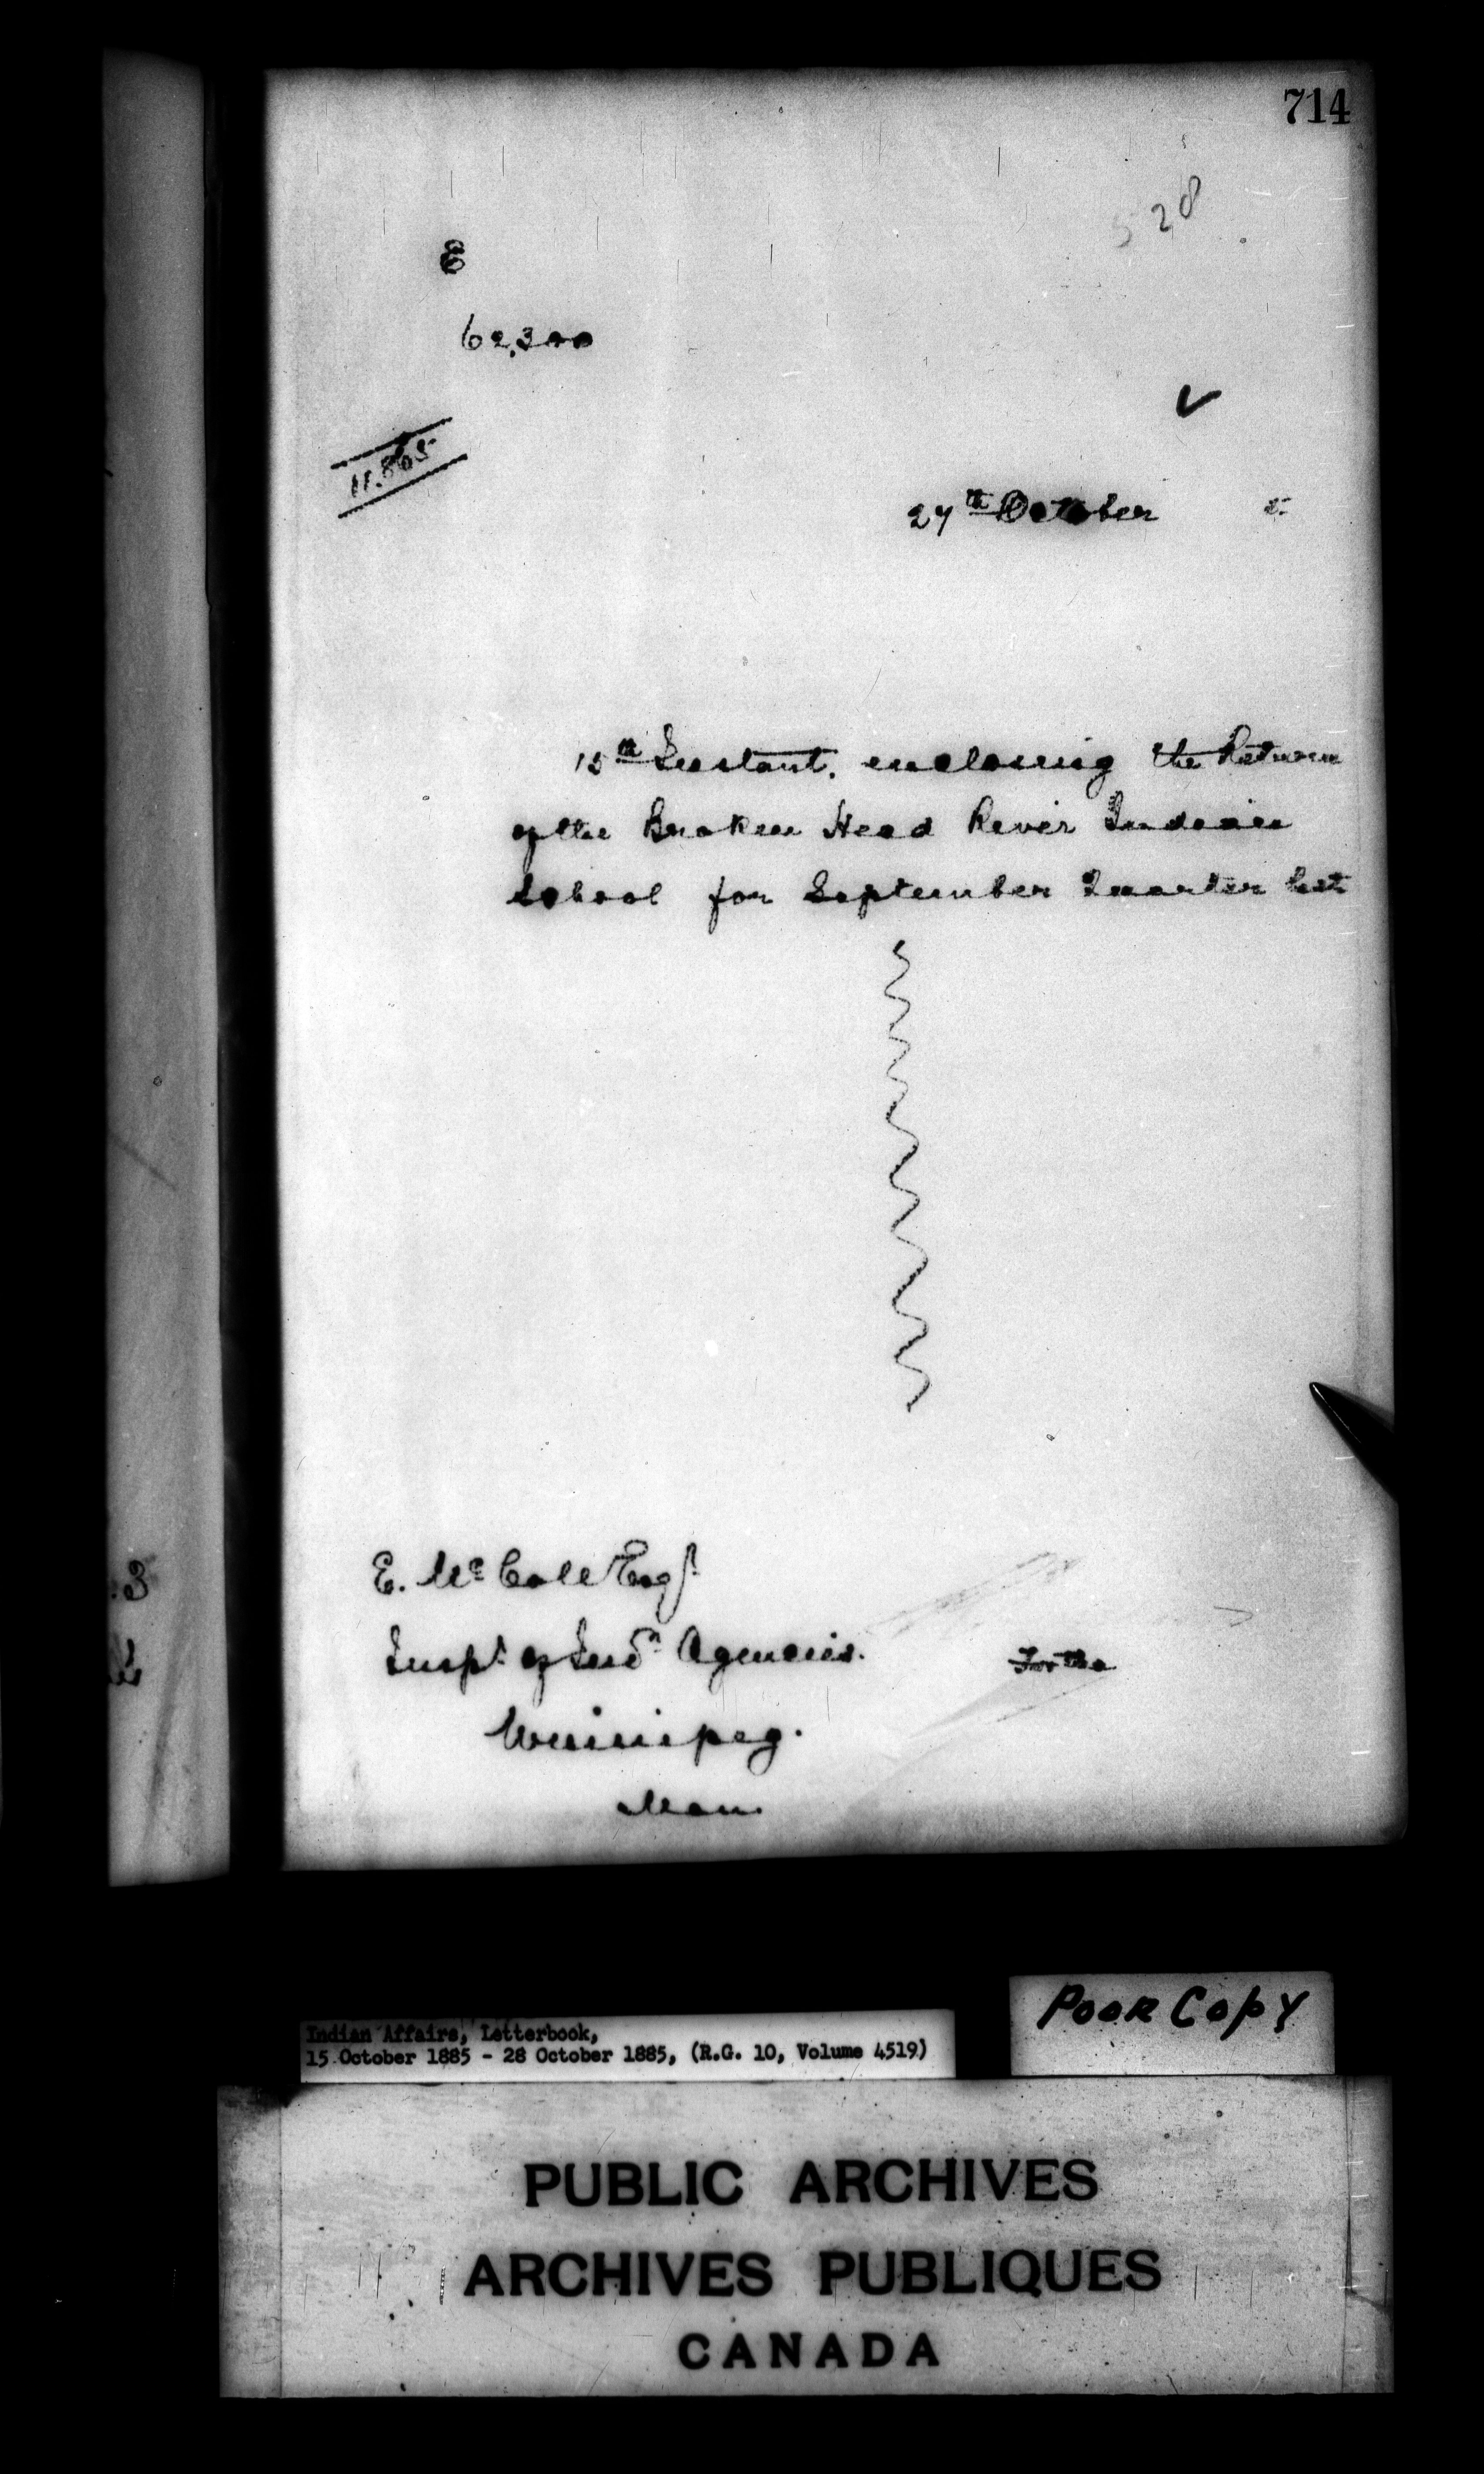 714
528
E
62,300
11.865
27th October 5
15th Instant. enclosing the Return
of the Broken Head River Indian
School for September Quarter last
E. McColl Esqr
Inspt. of Indn Agencies.
For the
Winnipeg.
Man.
3
Poor Copy
Indian Affairs, Letterbook,
15 October 1885 - 28 October 1885, (R.G. 10, Volume 4519)
PUBLIC ARCHIVES
ARCHIVES PUBLIQUES
CANADA